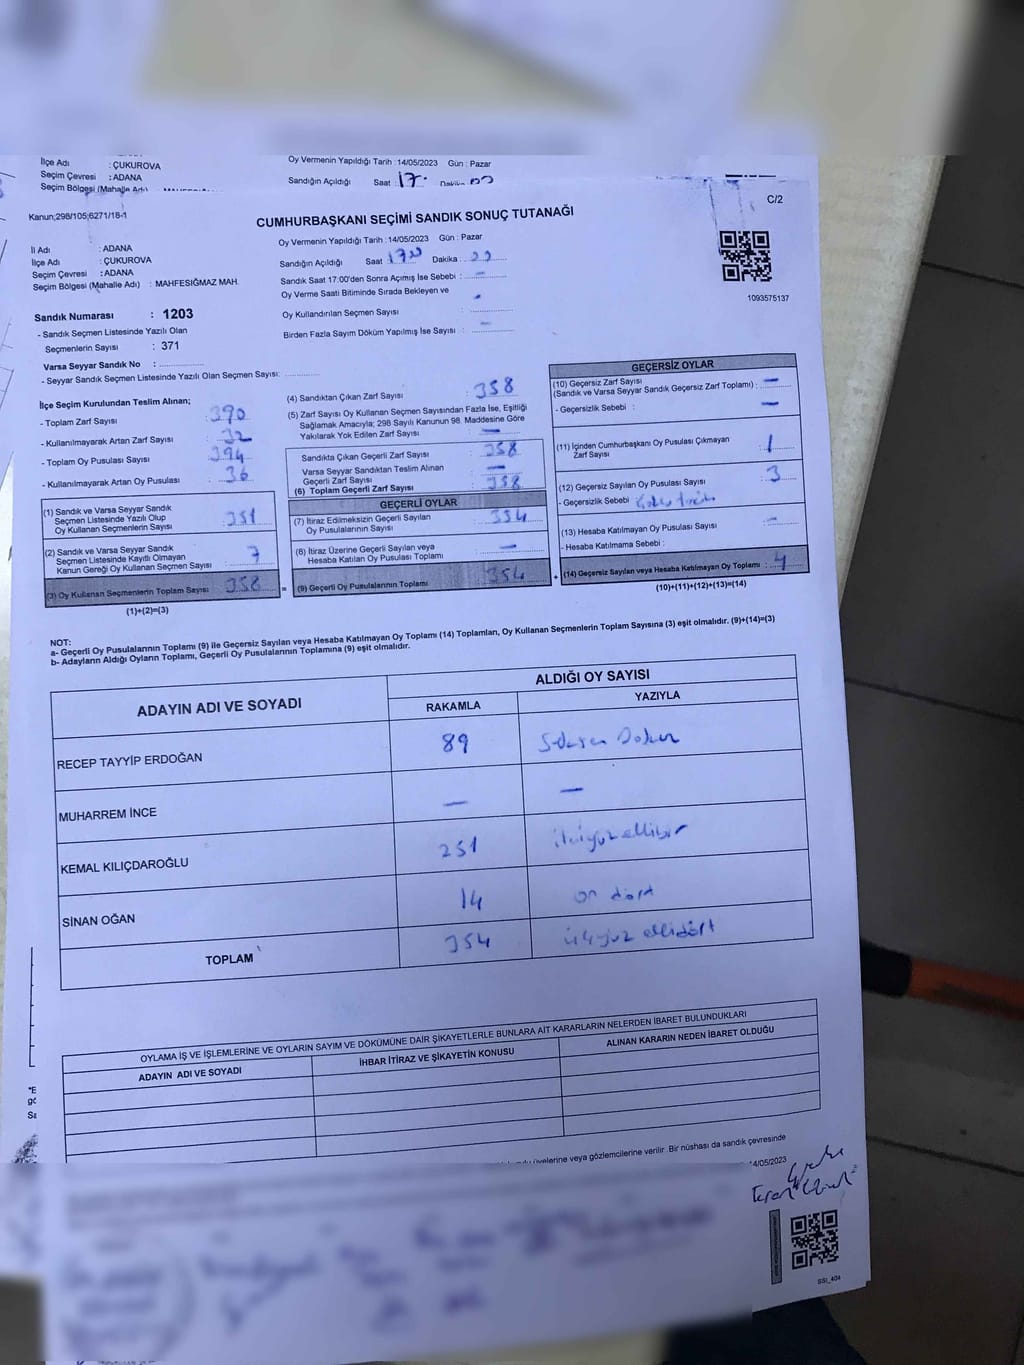 İlçe Adı : ÇUKUROVA
Seçim Çevresi : ADANA
Seçim Bölgesi (Mahalle Adı)
Oy Vermenin Yapıldığı Tarih : 14/05/2023 Gün : Pazar
Sandığın Açıldığı Saat 17. Dakika
C/2
Kanun;298/105;6271/18-1
CUMHURBAŞKANI SEÇİMİ SANDIK SONUÇ TUTANAĞI
İl Adı : ADANA
İlçe Adı : ÇUKUROVA
Seçim Çevresi : ADANA
Seçim Bölgesi (Mahalle Adı) : MAHFESIĞMAZ MAH.
Oy Vermenin Yapıldığı Tarih : 14/05/2023 Gün : Pazar
Sandığın Açıldığı Saat Dakika
Sandık Saat 17:00'den Sonra Açımış İse Sebebi : -
Oy Verme Saati Bitiminde Sırada Bekleyen ve
Oy Kullandırılan Seçmen Sayısı :
Birden Fazla Sayım Döküm Yapılmış İse Sayısı : -
1093575137
Sandık Numarası : 1203
- Sandık Seçmen Listesinde Yazılı Olan
Seçmenlerin Sayısı : 371
Varsa Seyyar Sandık No :
- Seyyar Sandık Seçmen Listesinde Yazılı Olan Seçmen Sayısı:
İlçe Seçim Kurulundan Teslim Alınan;
- Toplam Zarf Sayısı : 390
- Kullanılmayarak Artan Zarf Sayısı : 32
- Toplam Oy Pusulası Sayısı : 394
- Kullanılmayarak Artan Oy Pusulası : 36
(1) Sandık ve Varsa Seyyar Sandık
Seçmen Listesinde Yazılı Olup
Oy Kullanan Seçmenlerin Sayısı : 351
(2) Sandık ve Varsa Seyyar Sandık
Seçmen Listesinde Kayıtlı Olmayan
Kanun Gereği Oy Kullanan Seçmen Sayısı : 7
(3) Oy Kullanan Seçmenlerin Toplam Sayısı : 358
(1)+(2)=(3)
(4) Sandıktan Çıkan Zarf Sayısı : 358
(5) Zarf Sayısı Oy Kullanan Seçmen Sayısından Fazla İse, Eşitliği
Sağlamak Amacıyla; 298 Sayılı Kanunun 98. Maddesine Göre
Yakılarak Yok Edilen Zarf Sayısı : -
Sandıkta Çıkan Geçerli Zarf Sayısı : 358
Varsa Seyyar Sandıktan Teslim Alınan
Geçerli Zarf Sayısı : -
(6) Toplam Geçerli Zarf Sayısı : 358
=
GEÇERLİ OYLAR
(7) İtiraz Edilmeksizin Geçerli Sayılan
Oy Pusulalarının Sayısı : 354
(8) İtiraz Üzerine Geçerli Sayılan veya
Hesaba Katılan Oy Pusulası Toplamı : -
(9) Geçerli Oy Pusulalarının Toplamı : 354
+
GEÇERSİZ OYLAR
(10) Geçersiz Zarf Sayısı
(Sandık ve Varsa Seyyar Sandık Geçersiz Zarf Toplamı) : -
- Geçersizlik Sebebi : -
(11) İçinden Cumhurbaşkanı Oy Pusulası Çıkmayan
Zarf Sayısı : 1
(12) Geçersiz Sayılan Oy Pusulası Sayısı : 3
- Geçersizlik Sebebi
(13) Hesaba Katılmayan Oy Pusulası Sayısı : -
- Hesaba Katılmama Sebebi :
(14) Geçersiz Sayılan veya Hesaba Katılmayan Oy Toplamı : 4
(10)+(11)+(12)+(13)=(14)
NOT:
a- Geçerli Oy Pusulalarının Toplamı (9) ile Geçersiz Sayılan veya Hesaba Katılmayan Oy Toplamı (14) Toplamları, Oy Kullanan Seçmenlerin Toplam Sayısına (3) eşit olmalıdır. (9)+(14)=(3)
b- Adayların Aldığı Oyların Toplamı, Geçerli Oy Pusulalarının Toplamına (9) eşit olmalıdır.
ADAYIN ADI VE SOYADI
ALDIĞI OY SAYISI
RAKAMLA YAZIYLA
RECEP TAYYİP ERDOĞAN 89 Seksen Dokuz
MUHARREM İNCE - -
KEMAL KILIÇDAROĞLU 251 ikiyüzellibir
SİNAN OĞAN 14 on dört
TOPLAM 354 üçyüz ellidört
OYLAMA İŞ VE İŞLEMLERİNE VE OYLARIN SAYIM VE DÖKÜMÜNE DAİR ŞİKAYETLERLE BUNLARA AİT KARARLARIN NELERDEN İBARET BULUNDUKLARI
ADAYIN ADI VE SOYADI
İHBAR İTİRAZ VE ŞİKAYETİN KONUSU
ALINAN KARARIN NEDEN İBARET OLDUĞU
üyelerine veya gözlemcilerine verilir. Bir nüshası da sandık çevresinde
14/05/2023
SSI_404